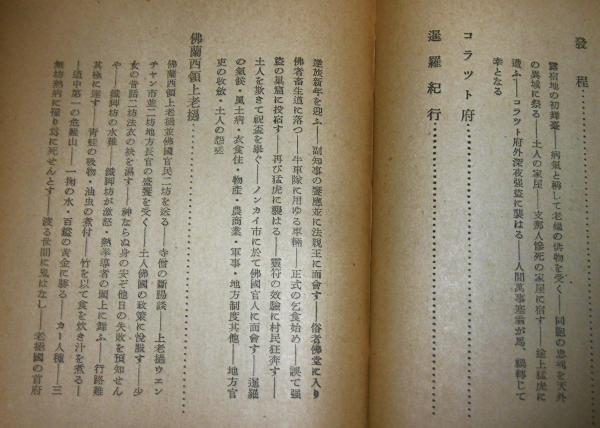 發程……………………
露宿地の初舞臺――病氣と稱して老媼の供物を受く――同胞の忠魂を天外
の異域に祭る――土人の家屋――支那人慘死の家屋に宿す――途上猛虎に
遭ふ――コラツト府外深夜强盜に襲はる――人間萬事塞翁が馬、禍轉じて
幸となる
コラツト府……………………
暹羅紀行……………………
蠻族新年を迎ふ――副知事の饗應並に法親王に面會す――俗者佛堂に入り
佛者畜生道に落つ――牛車隊に用ゆる車輛――正式の乞食始め――誤て强
盜の巢窟に投宿す――再び猛虎に襲はる――靈符の效驗に村民狂奔す――
土人を欺きて祝盃を擧ぐ――ノンカイ市に於て佛國官人に面會す――暹羅
の氣候・風土病・衣食住・物產・農商業・軍事・地方制度其他――地方官
吏の收斂・土人の怨嗟
佛蘭西領上老撾……………………
佛蘭西領上老撾並佛國官民二坊を送る――寺僧の斷腸談――上老撾ウエン
チヤン市並二坊地方長官の盛饗を受く――土人佛國の政策に悅服す――少
女の昔話二坊法衣の袂を濕す――神ならぬ身の安ぞ他日の失敗を預知せん
や――鐵脚坊の水難――鐵脚坊が激怒・熱棒導者の頭上に舞ふ――行路難
其極に達す――靑蛙の吸物・油虫の煮付――竹を以て食を炊き汁を煮る――
道中第一の危難山――一掬の水・百鎰の黃金に勝る――カー人種――三
無坊熱病に罹り爲に死せんとす――渡る世間に鬼はなし――老撾國の首府